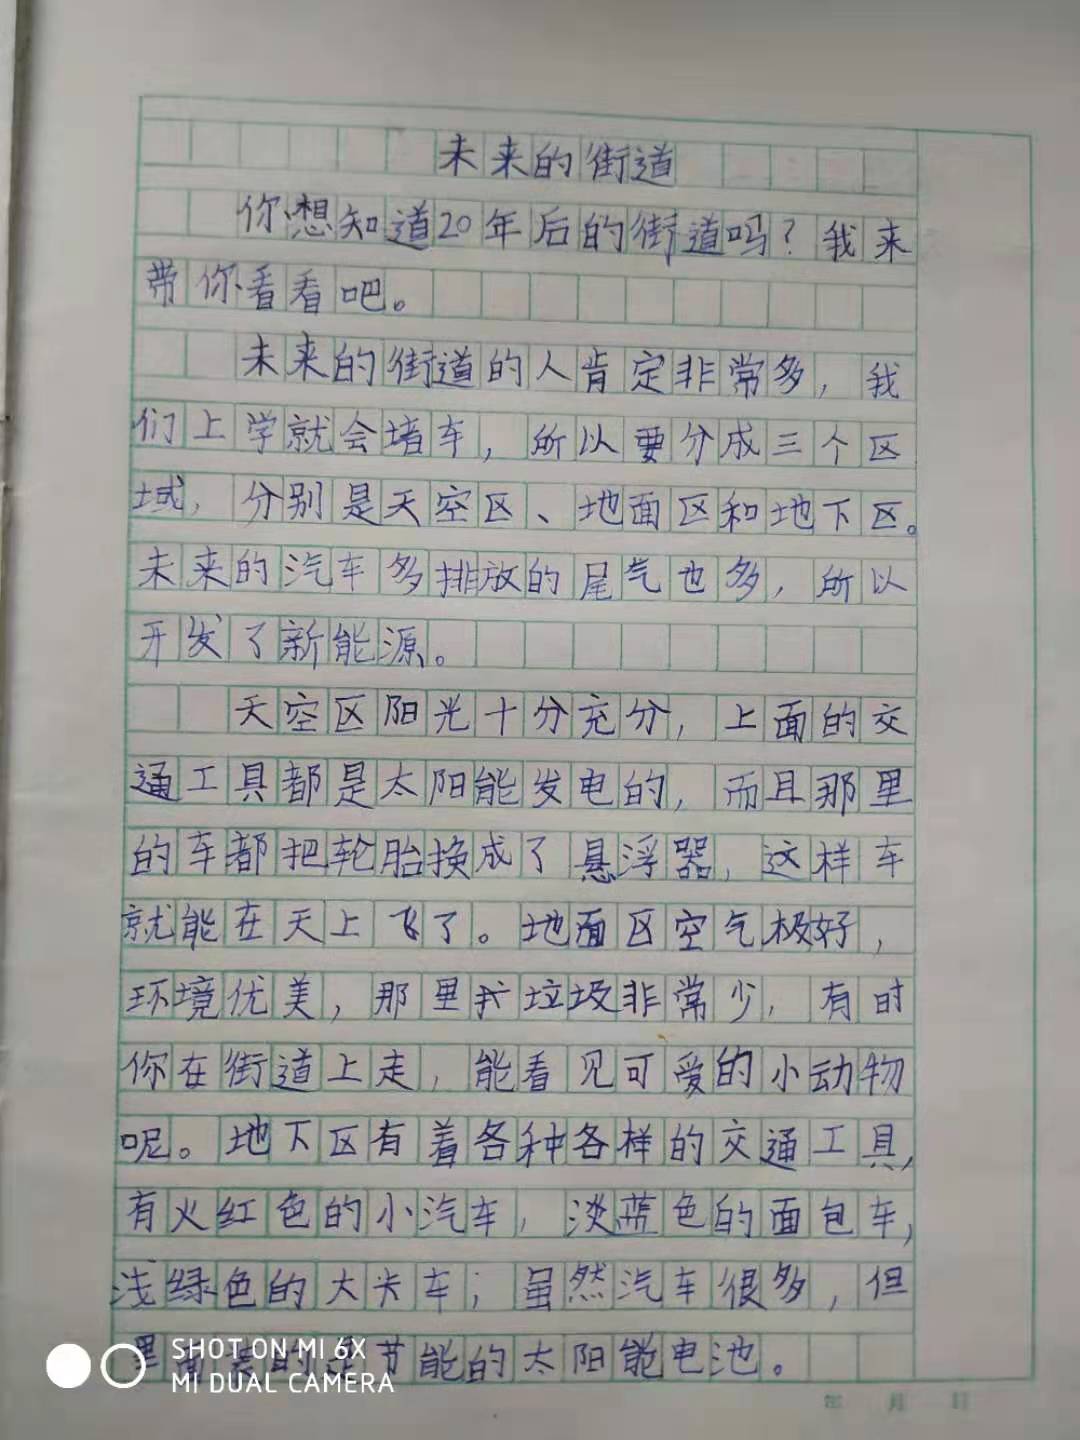 未来的街道
你想知道20年后的街道吗？我来
带你看看吧。
未来的街道的人肯定非常多，我
们上学就会堵车，所以要分成三个区
域，分别是天空区、地面区和地下区。
未来的汽车多排放的尾气也多，所以
开发了新能源。
天空区阳光十分充分，上面的交
通工具都是太阳能发电的，而且那里
的车都把轮胎换成了悬浮器，这样车
就能在天上飞了。地面区空气极好，
环境优美，那里垃圾非常少，有时
你在街道上走，能看见可爱的小动物
呢。地下区有着各种各样的交通工具，
有火红色的小汽车，淡蓝色的面包车，
浅绿色的大卡车；虽然汽车很多，但
里面装的是节能的太阳能电池。
SHOT ON MI 6X
MI DUAL CAMERA
年 月 日